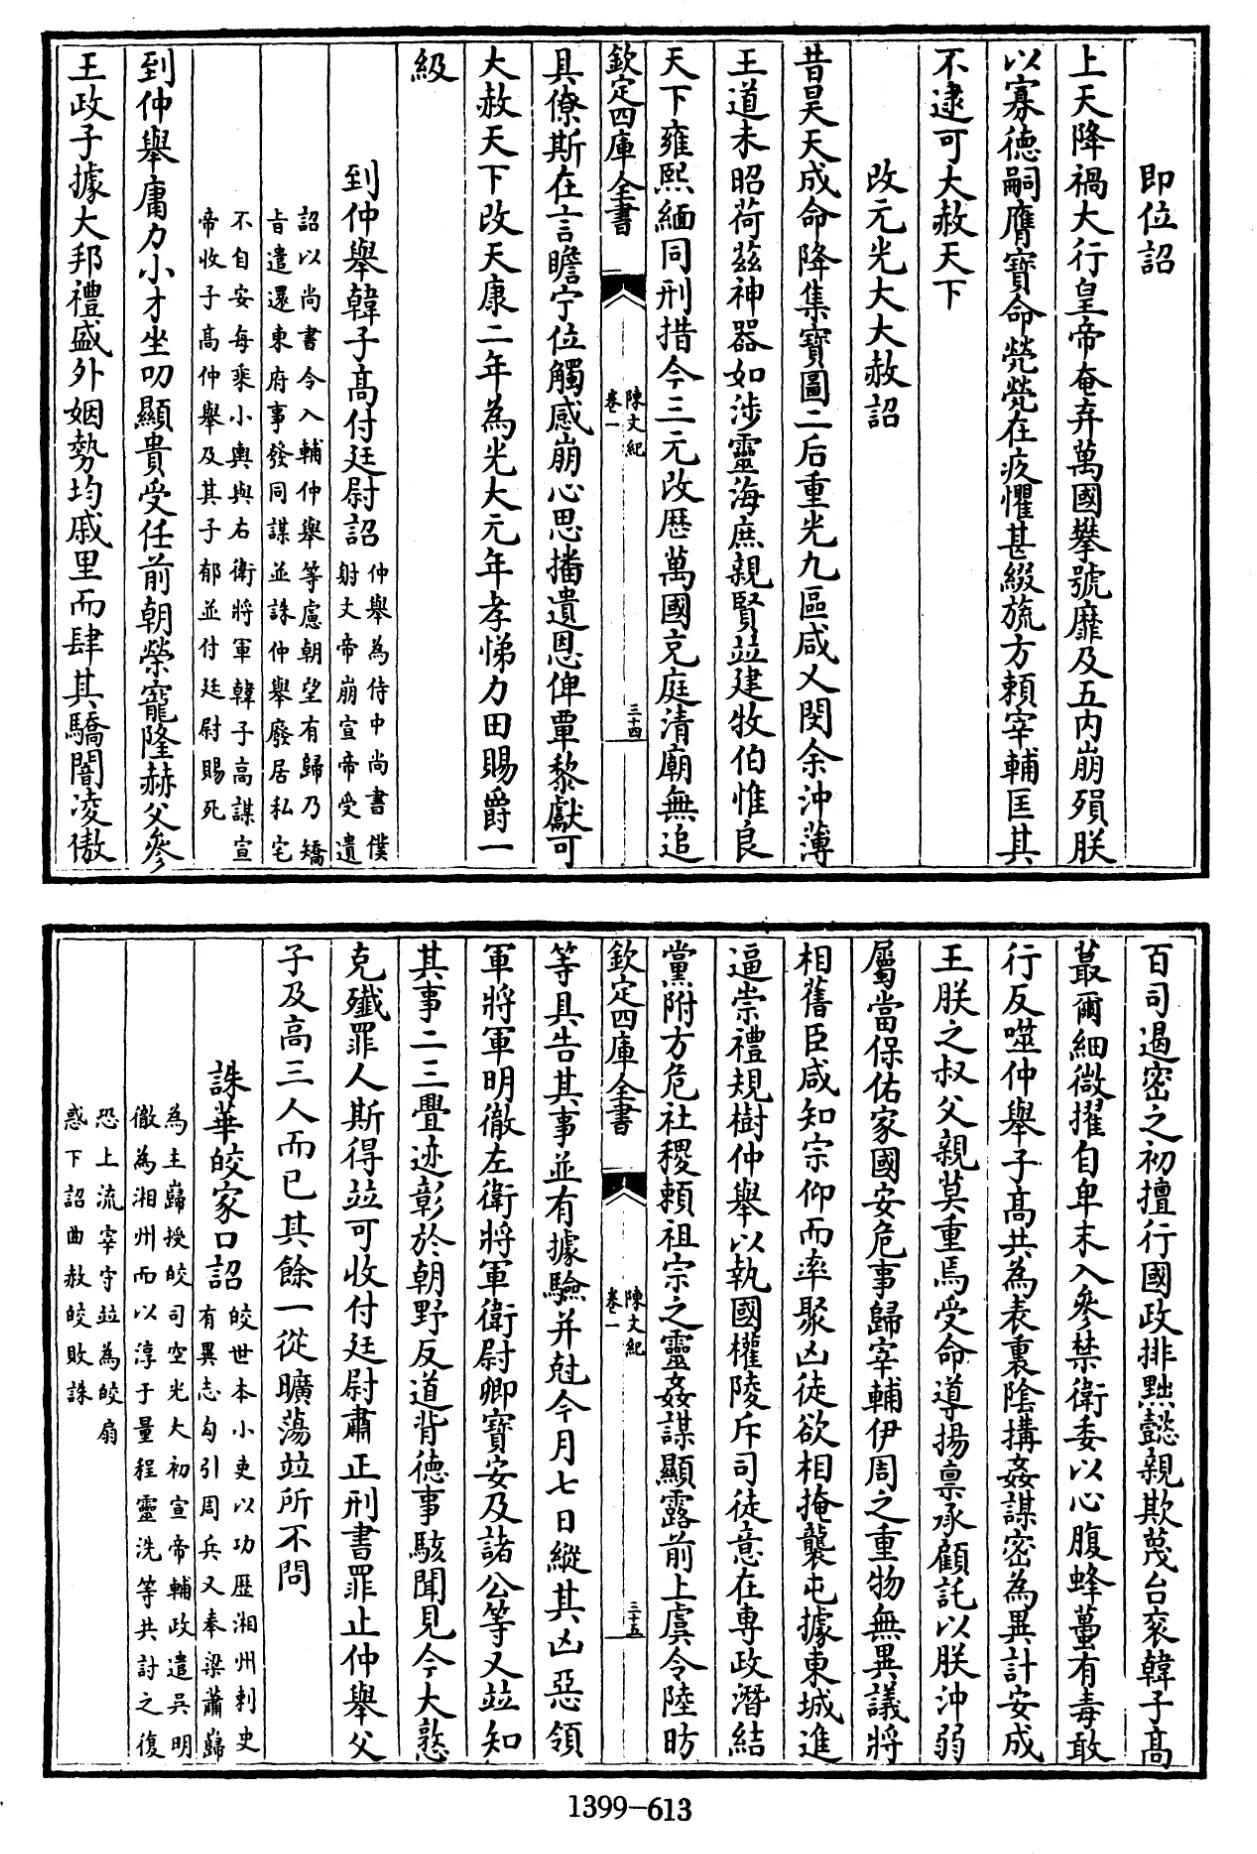 即位詔
上天降禍大行皇帝奄弃萬國攀號靡及五内崩殞朕
以寡德嗣膺寶命煢煢在疚懼甚綴旒方賴宰輔匡其
不逮可大赦天下
改元光大大赦詔
昔昊天成命降集寶圖二后重光九區咸乂閔余沖薄
王道未昭荷茲神器如涉靈海庶親賢竝建牧伯惟良
天下雍熙緬同刑措今三元改歷萬國克庭清廟無追
欽定四庫全書
陳文紀
卷一
三十四
具僚斯在言瞻宁位觸感崩心思播遺恩俾覃黎獻可
大赦天下改天康二年為光大元年孝悌力田賜爵一
級
到仲舉韓子高付廷尉詔
仲舉為侍中尚書僕
射文帝崩宣帝受遺
詔以尚書令入輔仲舉等慮朝望有歸乃矯
旨遣還東府事發同謀並誅仲舉廢居私宅
不自安每乘小輿與右衛將軍韓子高謀宣
帝收子高仲舉及其子郁並付廷尉賜死
到仲舉庸力小才坐叨顯貴受任前朝榮寵隆赫父參
王政子據大邦禮盛外姻勢均戚里而肆其驕闇凌傲
百司遏密之初擅行國政排黜懿親欺蔑台袞韓子高
蕞爾細微擢自卑末入參禁衛委以心腹蜂蠆有毒敢
行反噬仲舉子高共為表裏陰搆姦謀密為異計安成
王朕之叔父親莫重焉受命導揚禀承顧託以朕沖弱
屬當保佑家國安危事歸宰輔伊周之重物無異議將
相舊臣咸知宗仰而率聚凶徒欲相掩襲屯據東城進
逼崇禮規樹仲舉以執國權陵斥司徒意在専政潛結
黨附方危社稷賴祖宗之靈姦謀顯露前上虞令陸昉
欽定四庫全書
陳文紀
卷一
三十五
等具告其事並有據驗并尅今月七日縱其凶惡領
軍將軍明徹左衛將軍衛尉卿寶安及諸公等又竝知
其事二三疊迹彰於朝野反道背德事駭聞見今大憝
克殲罪人斯得竝可收付廷尉肅正刑書罪止仲舉父
子及高三人而已其餘一從曠蕩竝所不問
誅華皎家口詔
皎世本小吏以功歷湘州刺史
有異志勾引周兵又奉梁蕭巋
為主巋授皎司空光大初宣帝輔政遣吳明
徹為湘州而以淳于量程靈洗等共討之復
恐上流宰守竝為皎扇
惑下詔曲赦皎敗誅
1399-613